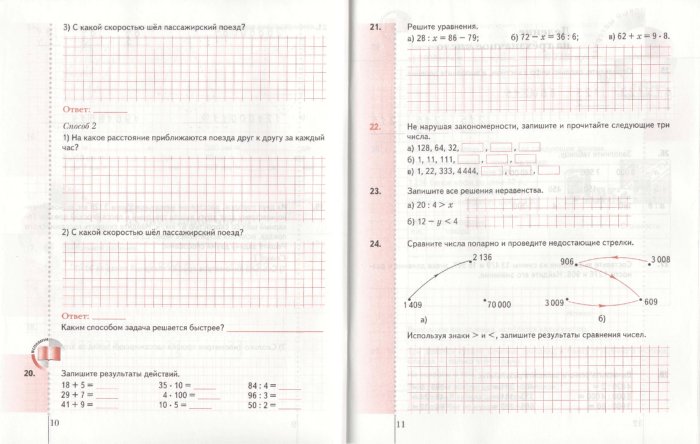 3) С какой скоростью шёл пассажирский поезд?
Ответ:
Способ 2
1) На какое расстояние приближаются поезда друг к другу за каждый
час?
2) С какой скоростью шёл пассажирский поезд?
Ответ:
Каким способом задача решается быстрее?
20. Запишите результаты действий.
18 + 5 = 35 · 10 = 84 : 4 =
29 + 7 = 4 · 100 = 96 : 3 =
41 + 9 = 10 · 5 = 50 : 2 =
10
21. Решите уравнения.
а) 28 : x = 86 – 79; б) 72 – x = 36 : 6; в) 62 + x = 9 · 8.
22. Не нарушая закономерности, запишите и прочитайте следующие три
числа.
а) 128, 64, 32, , ,
б) 1, 11, 111, , ,
в) 1, 22, 333, 4 444, , ,
23. Запишите все решения неравенства.
а) 20 : 4 > x
б) 12 – y < 4
24. Сравните числа попарно и проведите недостающие стрелки.
2 136
906
3 008
1 409
70 000
3 009
609
а) б)
Используя знаки > и <, запишите результаты сравнения чисел.
11